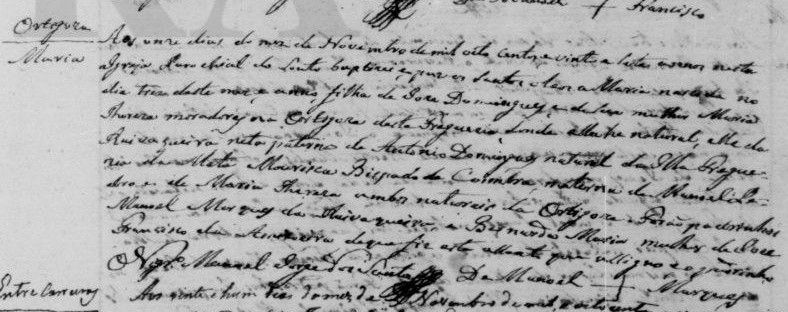 Francisco
Ortigoza
Maria
Aos onze dias do mez de Novembro de mil oito centos e vinte e sete annos nesta
Igreja Parochial do Souto baptizei e puz os Santos oleos a Maria nascida no
dia tres deste mez e anno, filha de Joze Domingues e de sua mulher Maria
Thereza moradores na Ortigoza desta Freguezia donde a Madre natural, elle da
Ruivaqueira neta paterna de Antonio Domingues natural da Ilha Fregue-
zia da Mata Mourisca Bispado de Coimbra materna de Manoel Pe-
dro e de Maria Thereza ambos naturais da Ortigoza Forão padrinhos
Manoel Marques da Ruivaqueira, e Bernarda Maria mulher de Joze
Francisco da de que fiz este assento que assignei e o padrinho
Manoel Jorge dos Santos De Manoel + Marques
Entre Carreiras
Aos vinte e hum dias do mez de Novembro de mil e oitocentos